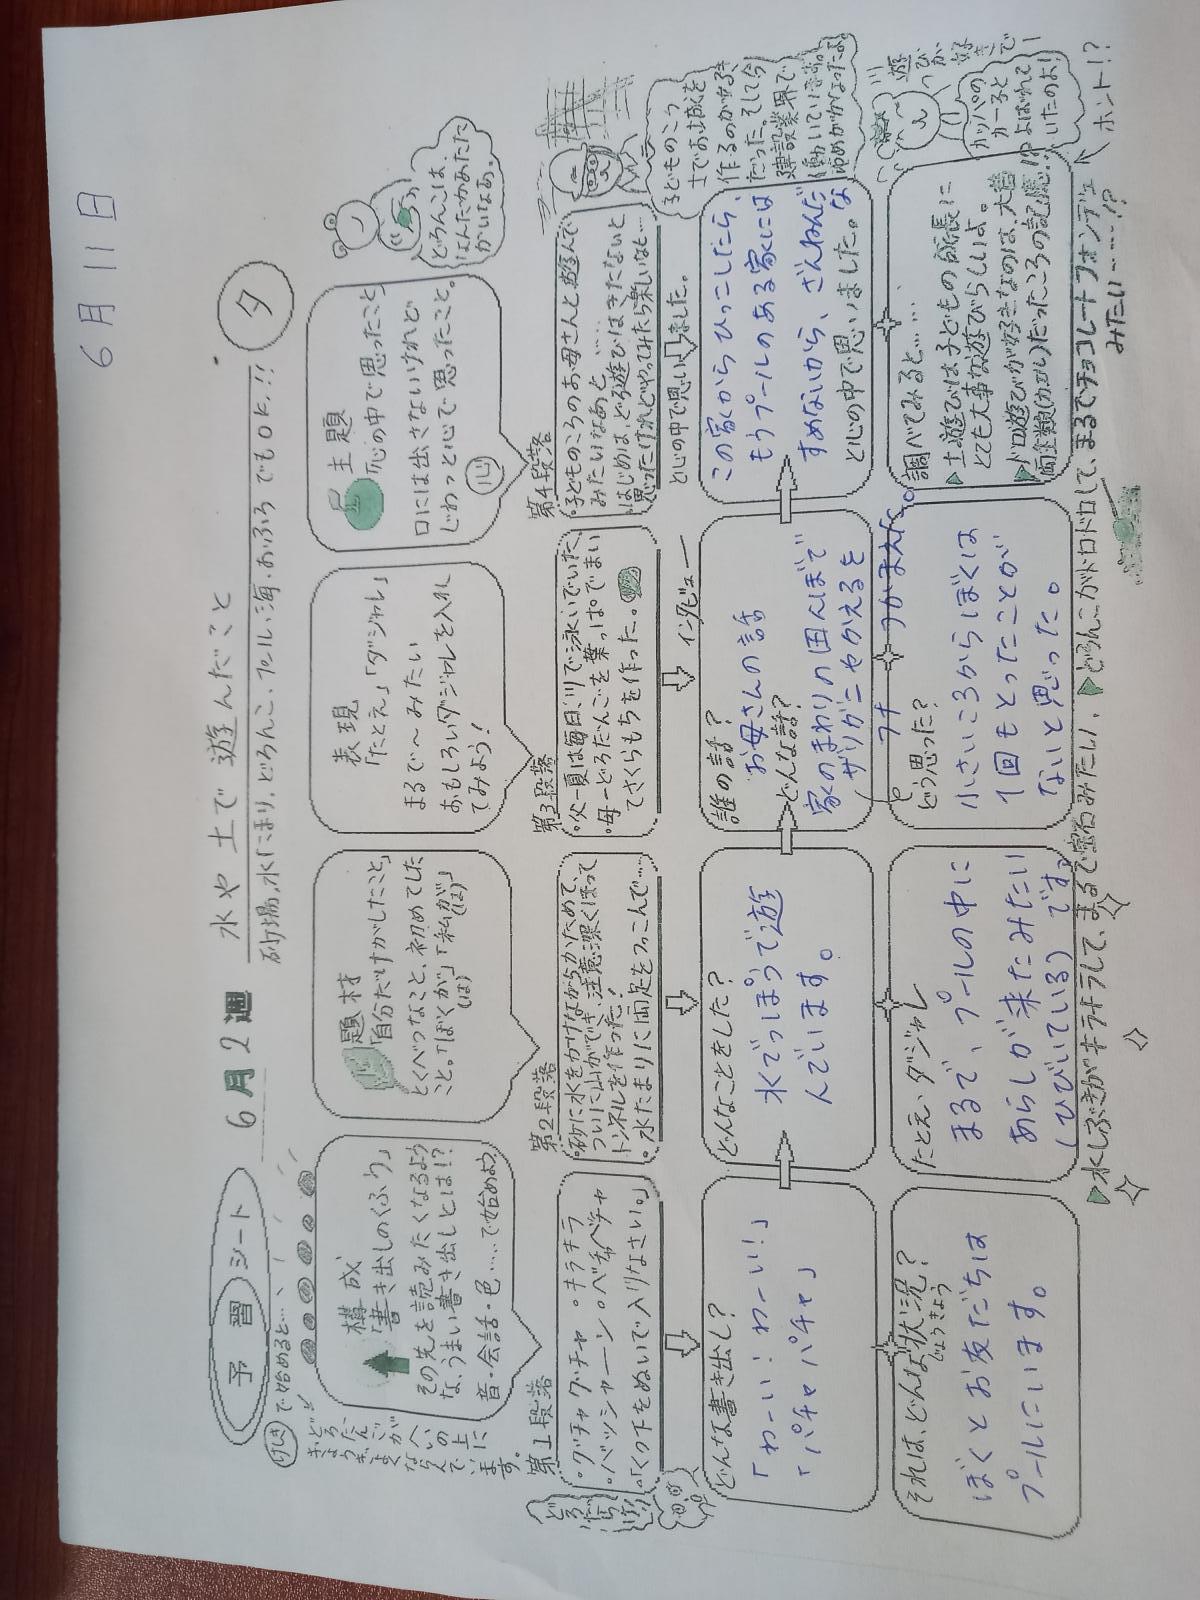 6月11日
予習シート
6月2週
水や土で遊んだこと
砂場、水たまり、どろんこ、プール、海、おふろでもOK!!
夕
けしきで始めると…、
どろだんごがぎょうぎよくならんでいます。
構成
「書き出しのくふう」
その先を読みたくなるよう
な、うまい書き出しとは!?
音・会話・色……で始めよう
題材
「自分だけがしたこと」
とくべつなこと、初めてした
こと。「ぼくが」「私が」
(は) (は)
表現
「たとえ」「ダジャレ」
まるで〜みたい
おもしろいダジャレを入れ
てみよう!
主題
「心の中で思ったこと」
口には出さないけれど
じわっと心で思ったこと。
心
どろんこは、
なんだかあたた
かいなあ。
第1段落
・グチャグチャ ・キラキラ
・バッシャーン ・ベチャベチャ
・「くつ下をぬいで入りなさい。」
第2段落
・砂に水をかけながらかためて、
ついに山ができ、注意深くほって
トンネルを作った!
・水たまりに両足をつっこんで……
第3段落
・父―夏は毎日、川で泳いでいた。
・母―どろだんごを葉っぱでまい
てさくらもちを作った。
第4段落
・子どものころのお母さんと遊んで
みたいなあと……
・はじめは、どろ遊びはきたないと
思ったけれどやってみたら楽しいなと…
と心の中で思いました。
インタビュー
子どものころ
土でお城を
作るのが好き
だった。そして今
建設業界で
働いています。
ゆめがかなったよ。
どんな書き出し?
「わーい!わーい!」
「パチャパチャ」
どんなことをした?
水でっぽうで遊
んでいます。
誰の話?
お母さんの話
どんな話?
家のまわりの田んぼで
ザリガニやかえるを
この家からひっこしたら、
もうプールのある家には
すめないから、ざんねんだな
と心の中で思いました。
それは、どんな状況?
じょうきょう
ぼくとお友だちは
プールにいます。
たとえ、ダジャレ
まるで、プールの中に
あらしが来たみたい
(ひびいている)です。
どう思った?
小さいころからぼくは
1回もとったことが
ないと思った。
調べてみると……
▶土遊びは子どもの成長に
とても大事な遊びらしいよ。
▶ドロ遊びが好きなのは、大昔
両生類(カエル)だったころの記憶!?
遊びが好きで
カッパの
カー子と
よばれて
いたのよ!
ホント!?
▶水しぶきがキラキラして、まるで宝石みたい。▶どろんこがドロドロして、まるでチョコレートフォンデュ
みたい……!?